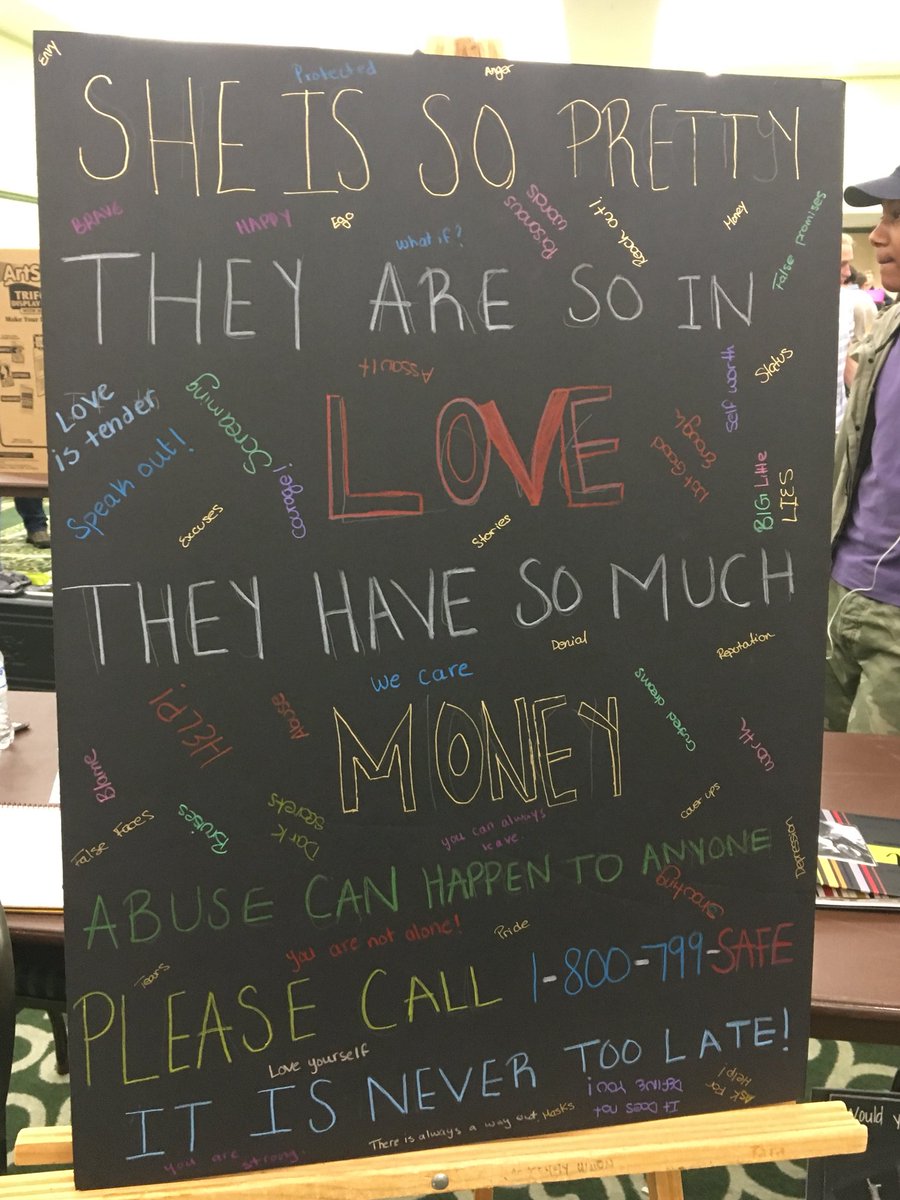 Envy
Protected
Anger
SHE IS SO PRETTY
BRAVE
HAPPY
Ego
what if?
Poisonous
words
Reach out!
Money
False promises
ArtS
TRIF
DISPLAY
Make Your
THEY ARE SO IN
Assault
self worth
Status
Love
is tender
Screaming
LOVE
Not Good
Enough
Speak out!
courage!
BIG Little
LIES
Excuses
Stories
THEY HAVE SO MUCH
Denial
Reputation
We care
HELP!
Abuse
MONEY
Crushed dreams
worth
Blame
cover ups
False Faces
Bruises
Dark
secrets
you can always
leave.
Depression
ABUSE CAN HAPPEN TO ANYONE
Shouting
you are not alone!
Pride
Tears
PLEASE CALL 1-800-799-SAFE
Love yourself
IT IS NEVER TOO LATE!
It Does not
DEFINE YOU!
Ask For
Help!
There is always a way out,
Masks
you are
strong.
Would y